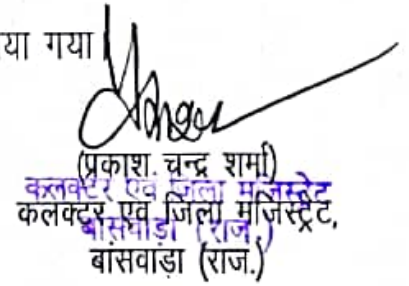 या गया
(प्रकाश चन्द्र शर्मा)
कलक्टर एवं जिला मजिस्ट्रेट
कलक्टर एवं जिला मजिस्ट्रेट,
बांसवाड़ा (राज.)
बांसवाड़ा (राज.)